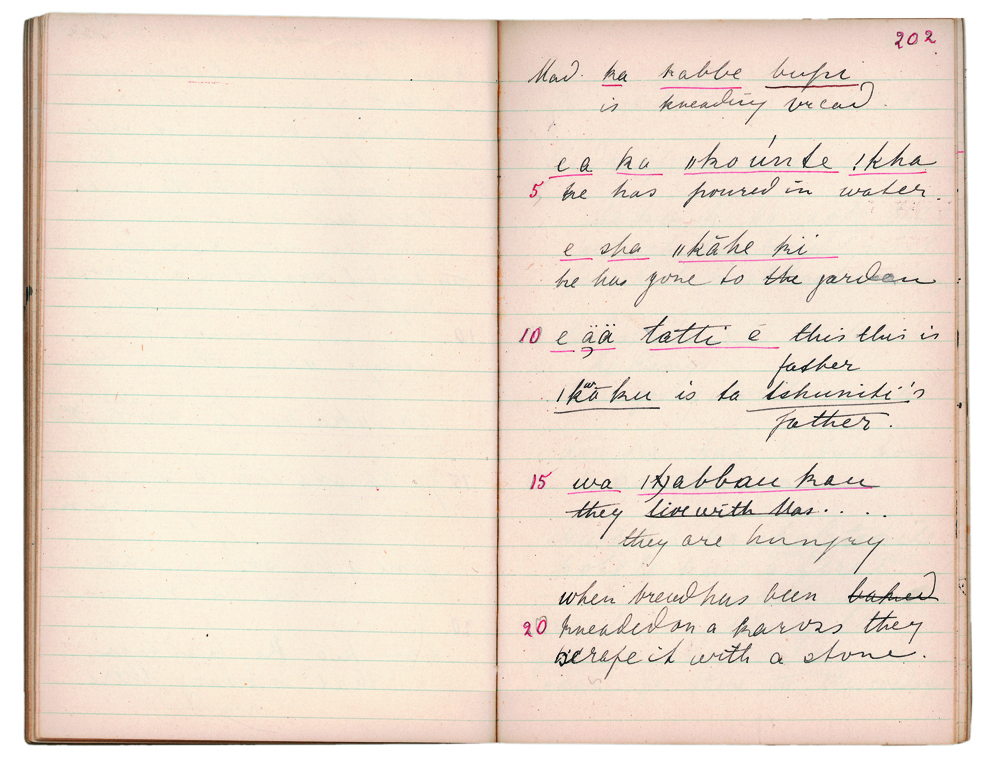 202
Mad. ka kabbe bupi
is kneading bread.
e a ka ǁkoúnte !kha
5 he has poured in water.
e sha ǁkāhe ki
he has gone to the garden
10 e ää tatti é this this is
father
is to tshuniti's
father.
15 wa kau
they live with Mas. . . .
they are hungry
when bread has been baked
20 kneaded on a kaross they
scrape it with a stone.